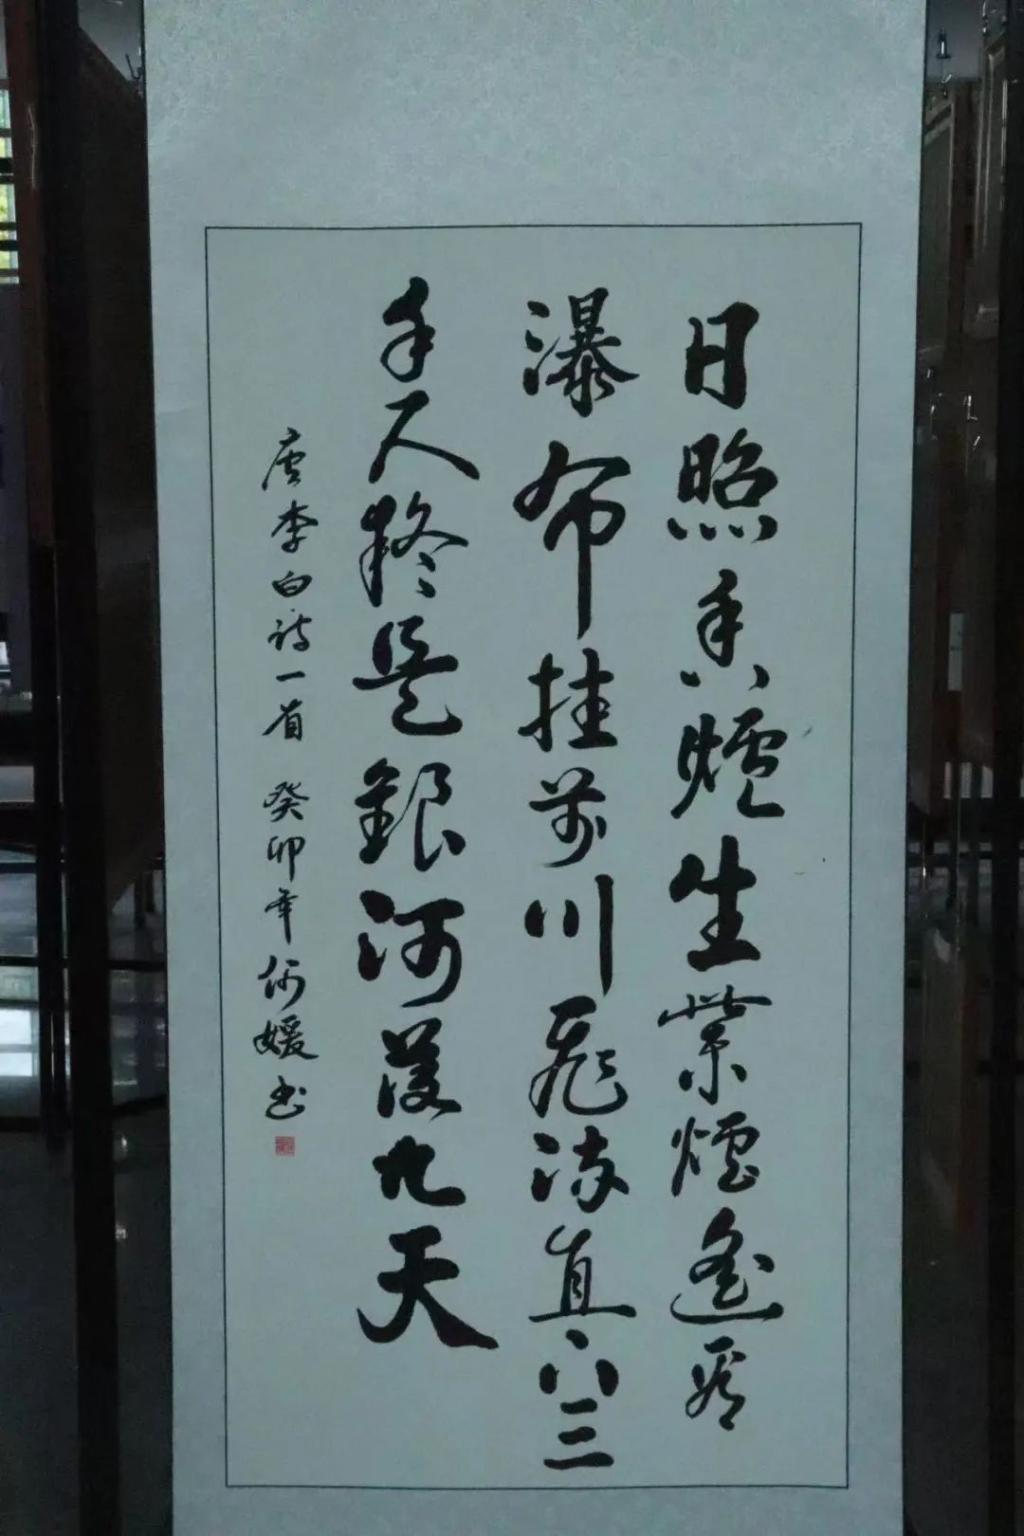 日照香爐生紫煙遙看
瀑布挂前川飛流直下三
千尺疑是銀河落九天
唐李白詩一首 癸卯年何媛书